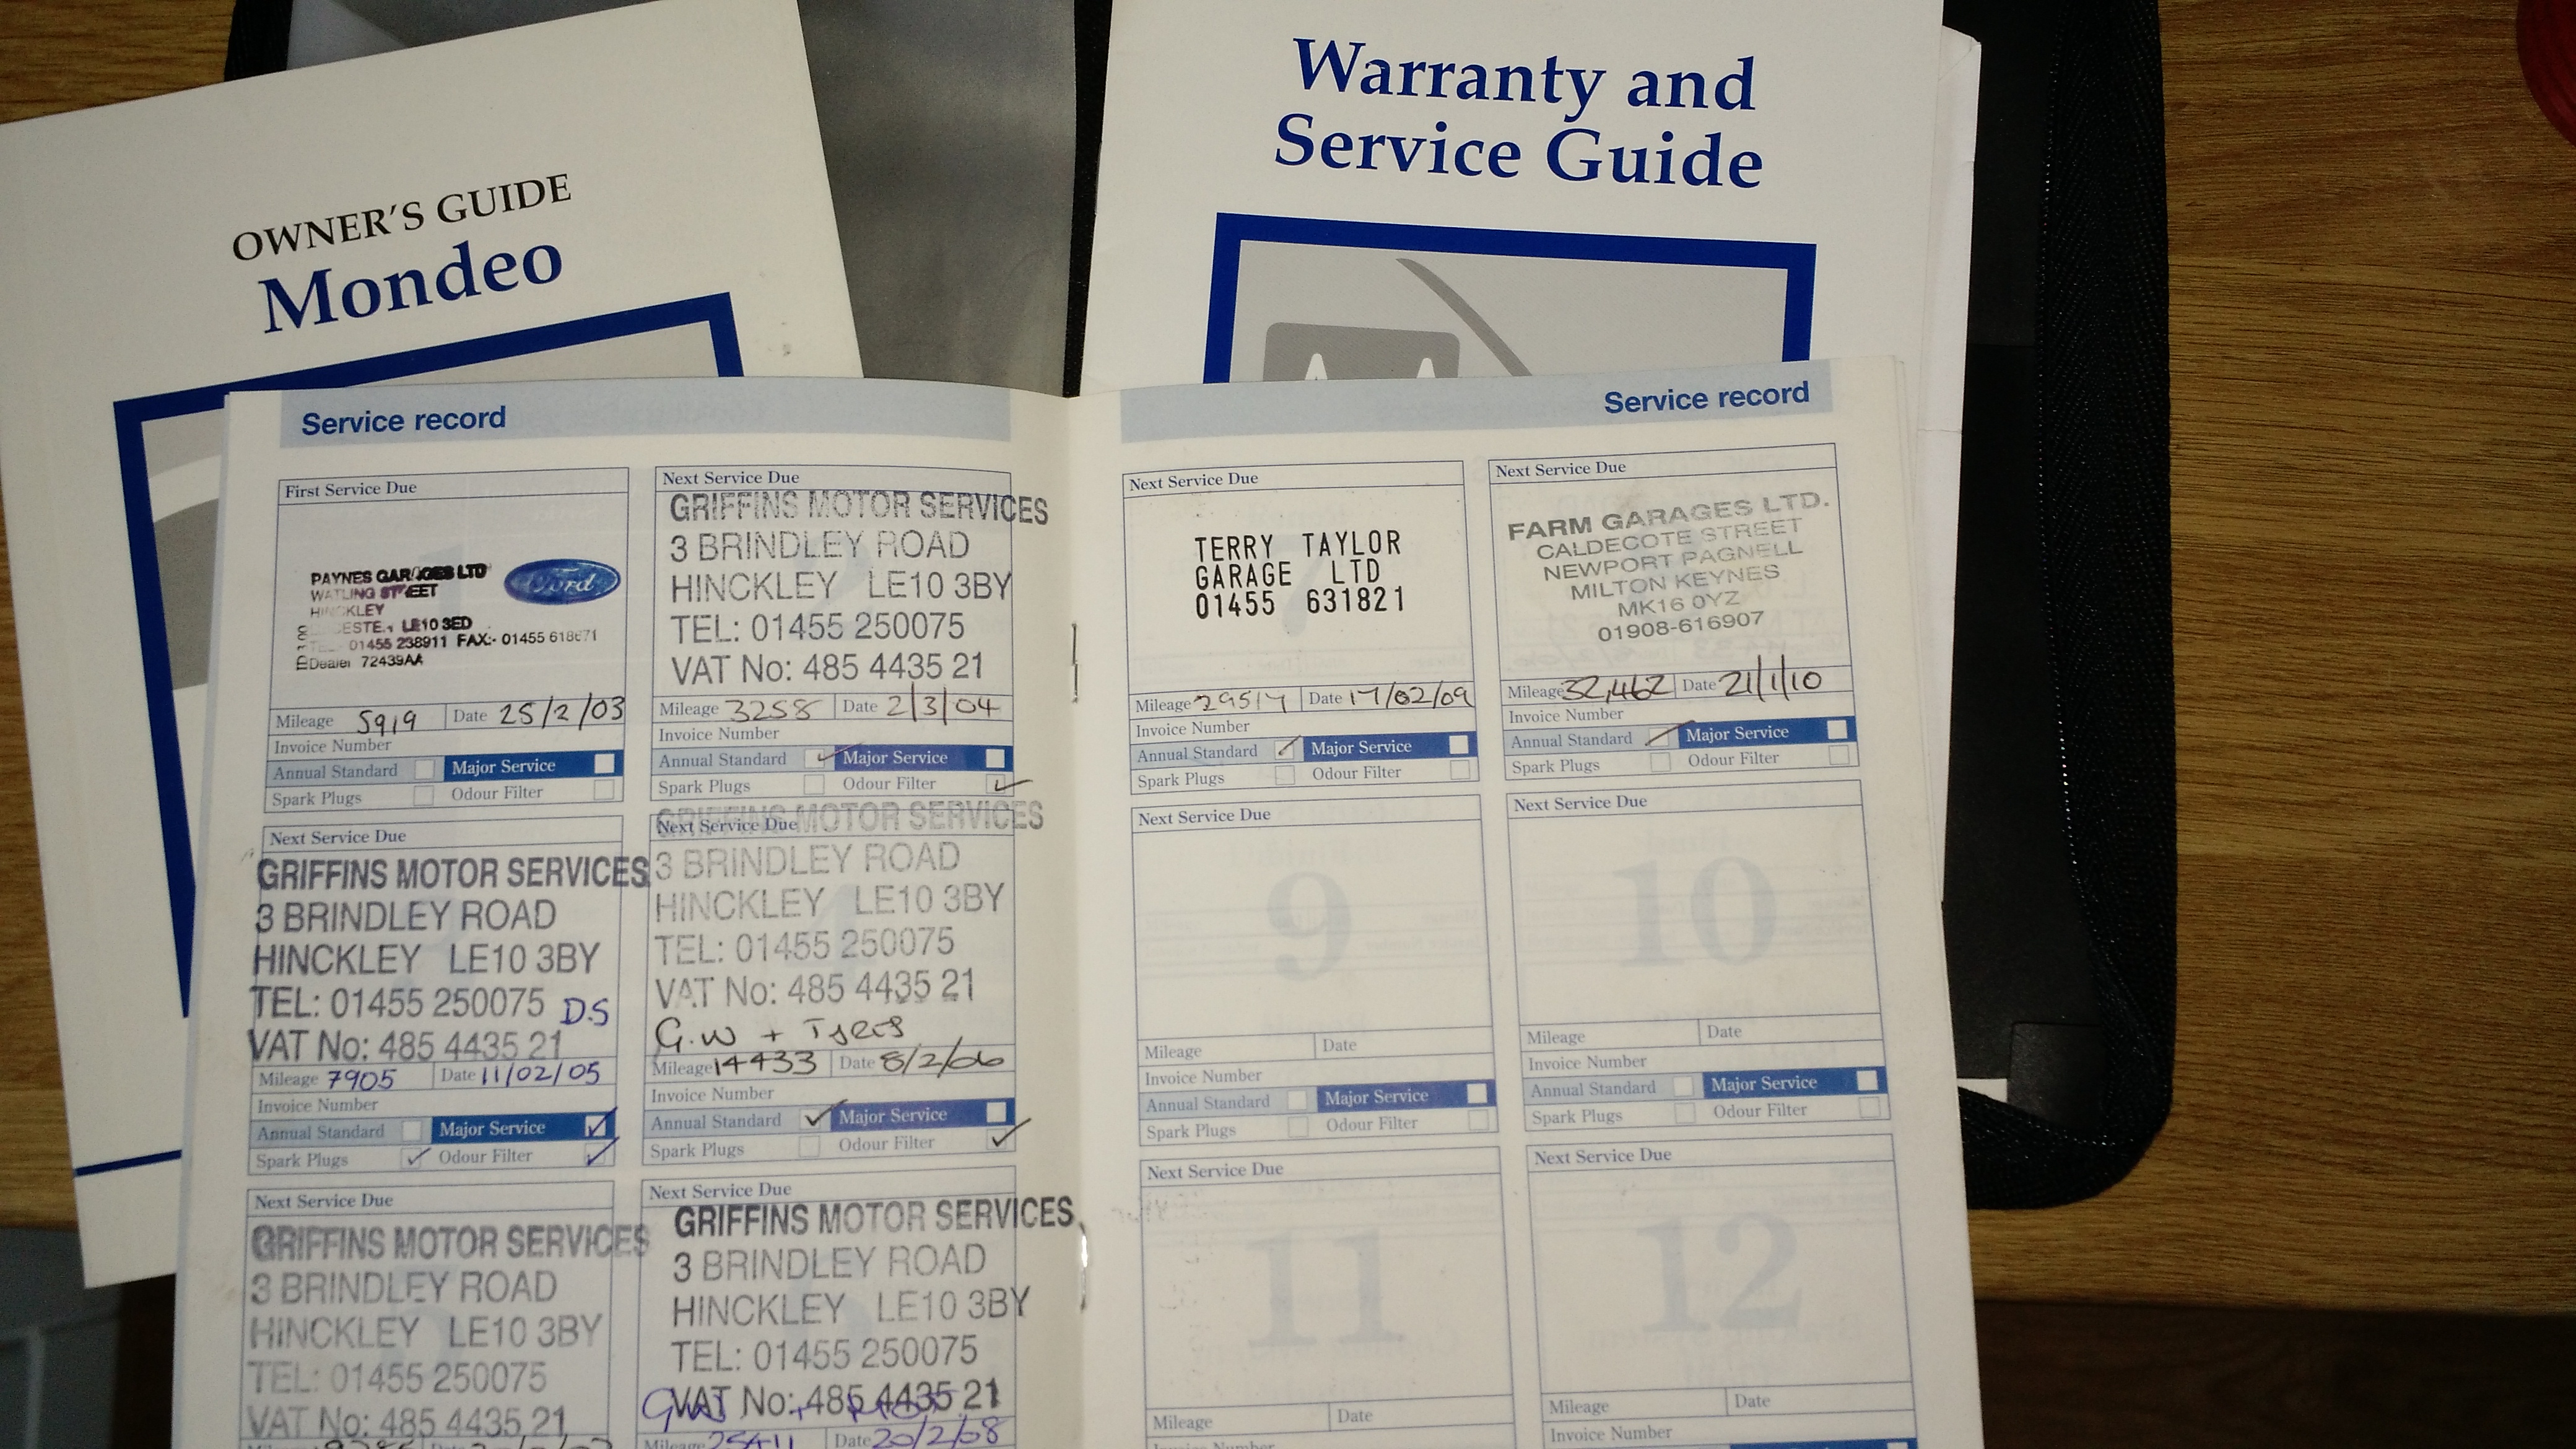 OWNER'S GUIDE
Mondeo
Warranty and
Service Guide
Service record
First Service Due
PAYNES GARAGES LTD
WATLING STREET
HINCKLEY
LE10 3ED
01455 238911 FAX:- 01455
Dealer 72439AA
Ford
Mileage 5919 Date 25/2/03
Invoice Number
Annual Standard Major Service
Spark Plugs Odour Filter
Next Service Due
GRIFFINS MOTOR SERVICES
3 BRINDLEY ROAD
HINCKLEY LE10 3BY
TEL: 01455 250075
VAT No: 485 4435 21
Mileage 3258 Date 2/3/04
Invoice Number
Annual Standard Major Service
Spark Plugs Odour Filter
Next Service Due
GRIFFINS MOTOR SERVICES
3 BRINDLEY ROAD
HINCKLEY LE10 3BY
TEL: 01455 250075 D.S
VAT No: 485 4435 21
Mileage 7905 Date 11/02/05
Invoice Number
Annual Standard Major Service
Spark Plugs Odour Filter
Next Service Due
GRIFFINS MOTOR SERVICES
3 BRINDLEY ROAD
HINCKLEY LE10 3BY
TEL: 01455 250075
VAT No: 485 4435 21
G.W +
Mileage 14433 Date 8/2/06
Invoice Number
Annual Standard Major Service
Spark Plugs Odour Filter
Next Service Due
GRIFFINS MOTOR SERVICES
3 BRINDLEY ROAD
HINCKLEY LE10 3BY
TEL: 01455 250075
VAT No: 485 4435 21
Next Service Due
GRIFFINS MOTOR SERVICES
3 BRINDLEY ROAD
HINCKLEY LE10 3BY
TEL: 01455 250075
VAT No: 485 4435 21
Mileage Date 20/2/08
Service record
Next Service Due
TERRY TAYLOR
GARAGE LTD
01455 631821
Mileage 29514 Date 17/02/09
Invoice Number
Annual Standard Major Service
Spark Plugs Odour Filter
Next Service Due
FARM GARAGES LTD.
CALDECOTE STREET
NEWPORT PAGNELL
MILTON KEYNES
MK16 0YZ
01908-616907
Mileage 32,462 Date 21/1/10
Invoice Number
Annual Standard Major Service
Spark Plugs Odour Filter
Next Service Due
9
Mileage Date
Invoice Number
Annual Standard Major Service
Spark Plugs Odour Filter
Next Service Due
10
Mileage Date
Invoice Number
Annual Standard Major Service
Spark Plugs Odour Filter
Next Service Due
11
Mileage Date
Invoice Number
Next Service Due
12
Mileage Date
Invoice Number